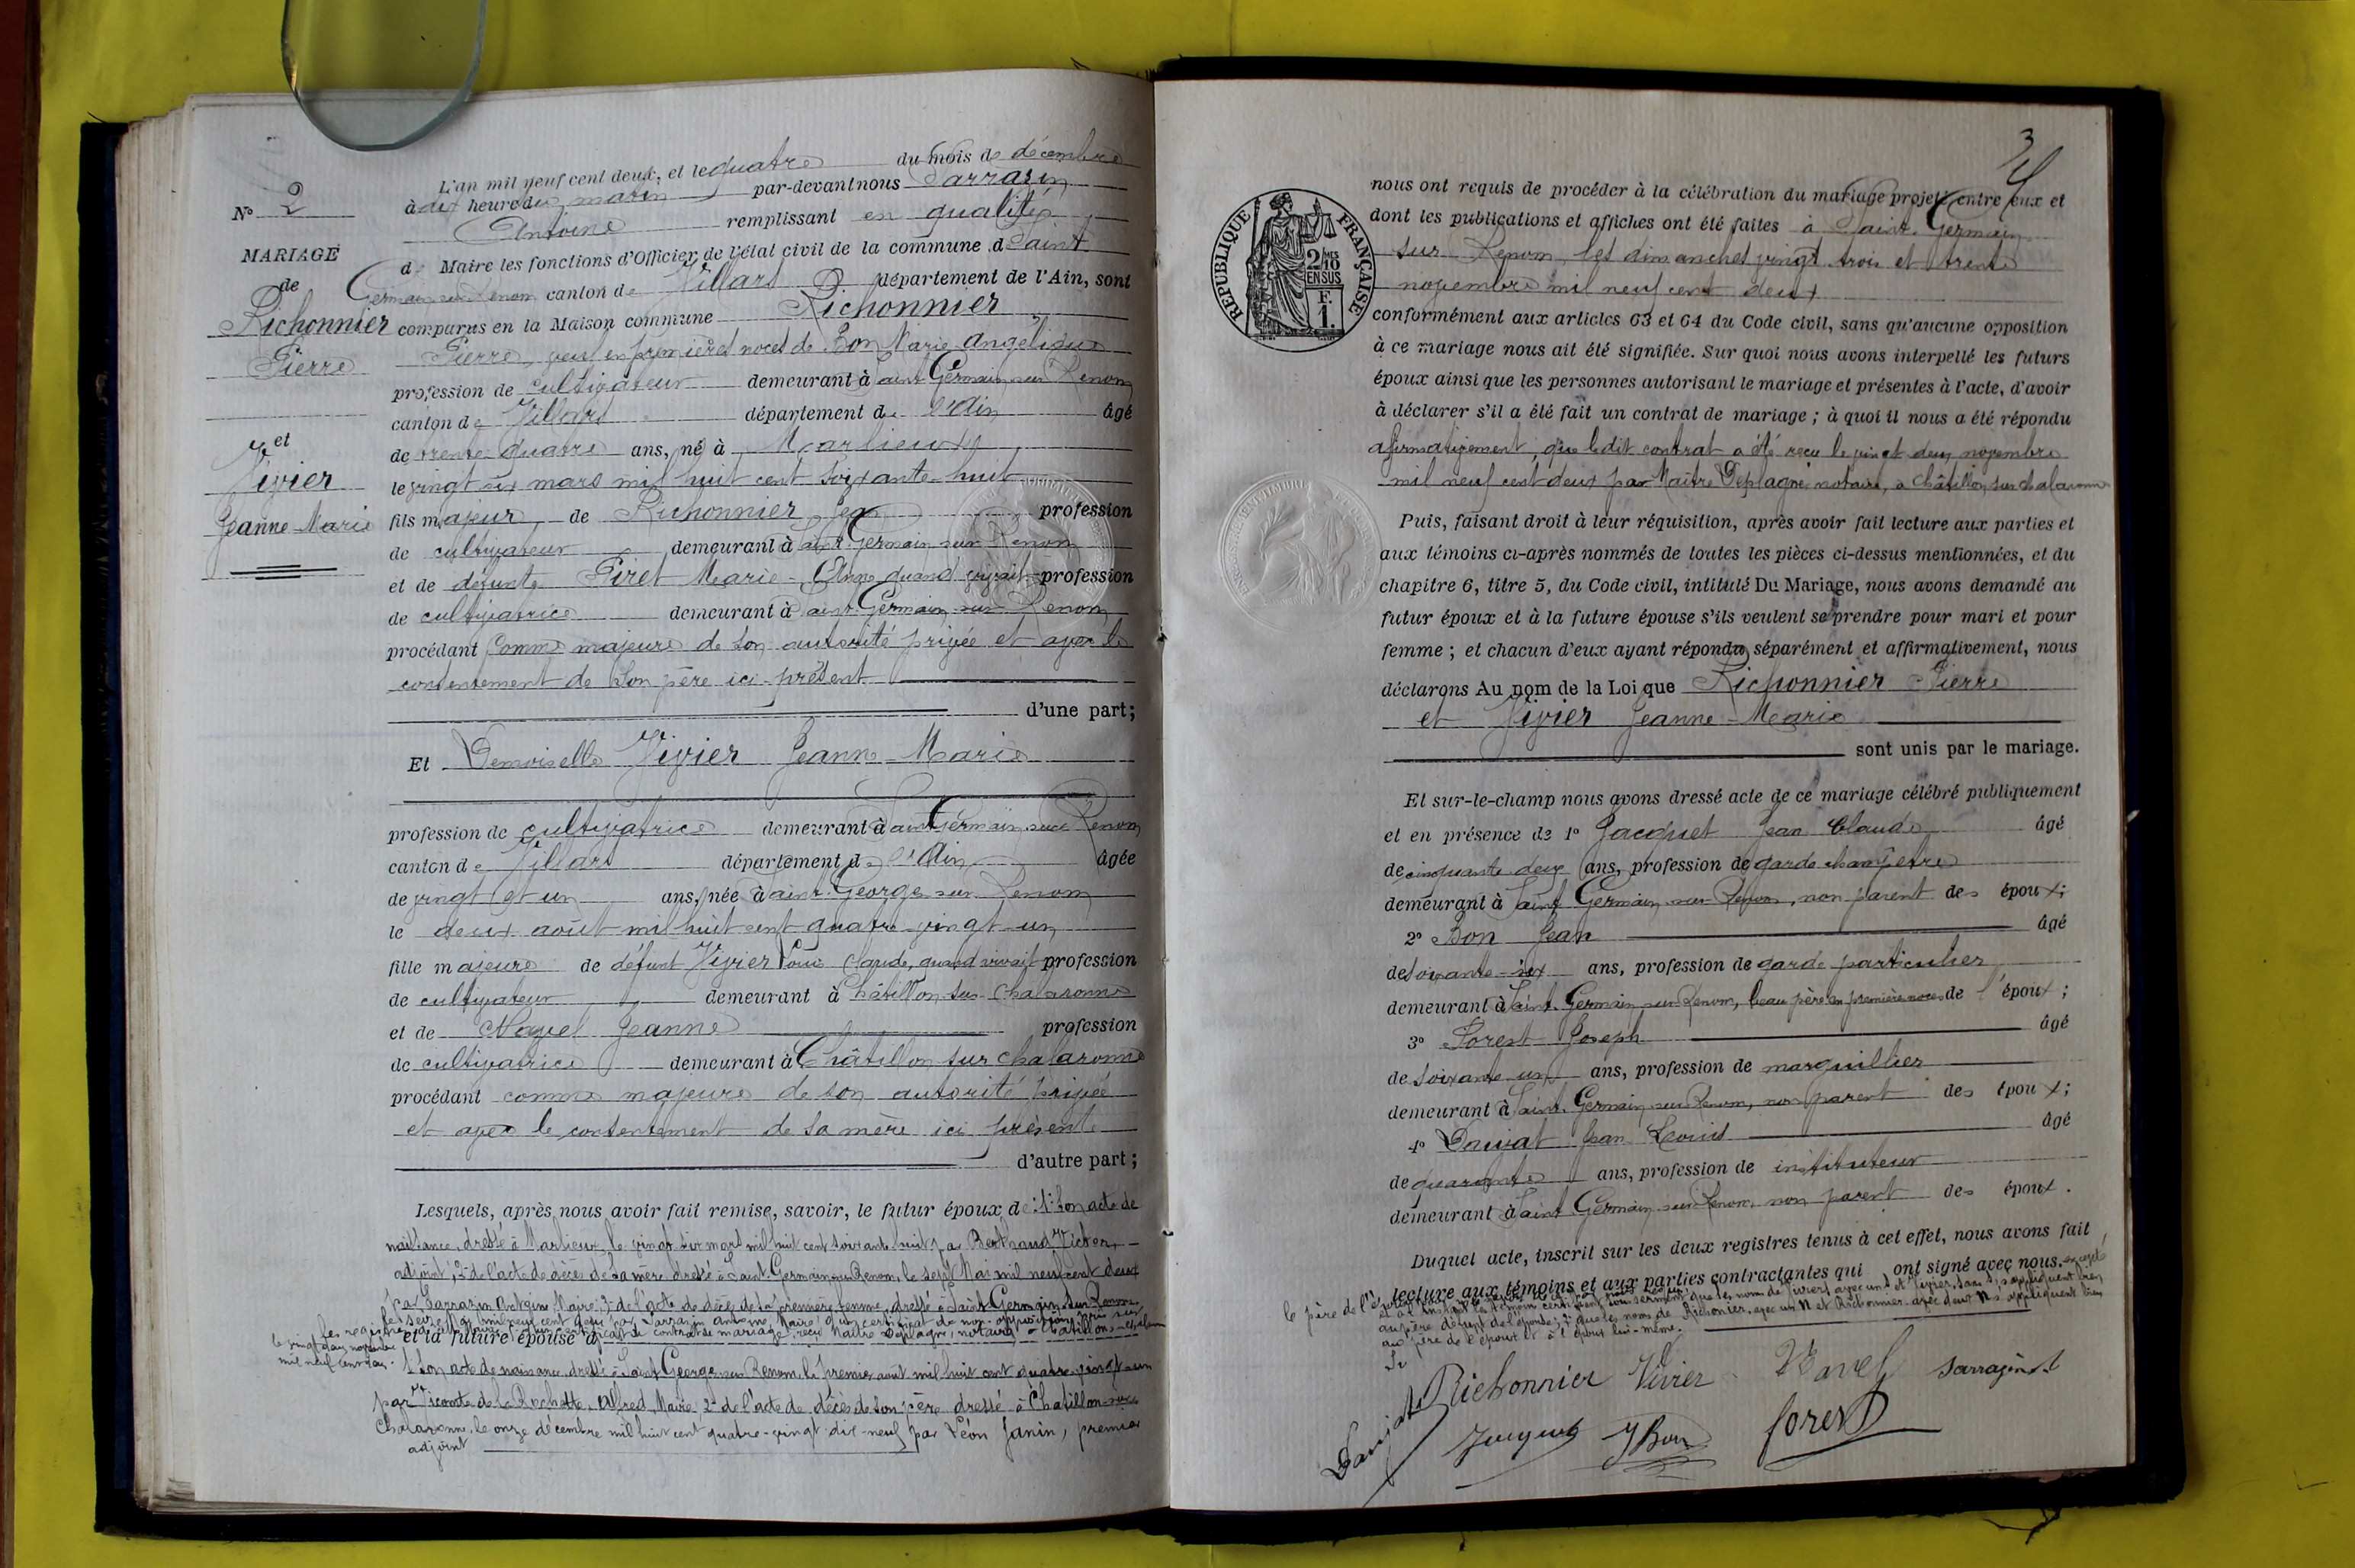 N° 2
MARIAGE
de
Richonnier
Pierre
et
Vivier
Jeanne-Marie
L'an mil neuf cent deux, et le quatre du mois de décembre
à dix heure du matin par-devant nous Sarrazin
Antoine remplissant en qualité
de Maire les fonctions d'Officier de l'état civil de la commune d Saint
Germain sur Renom canton de Villars département de l'Ain, sont
comparus en la Maison commune Richonnier
Pierre, veuf en premières noces de Bon Marie Angélique
profession de cultivateur demeurant à Saint Germain sur Renom
canton de Villars département de l'Ain âgé
de trente quatre ans, né à Marlieux
le vingt six mars mil huit cent soixante-huit
fils majeur de Richonnier Jean profession
de cultivateur demeurant à Saint Germain sur Renom
et de défunte Piret Marie-Ange quand vivait profession
de cultivatrice demeurant à Saint-Germain-sur Renom
procédant comme majeure de son autorité privée et avec le
consentement de son père ici présent
d'une part;
Et Demoiselle Vivier Jeanne-Marie
profession de cultivatrice demeurant à Saint Germain sur Renom
canton de Villars département de l'Ain âgée
de vingt et un ans, née à Saint-George-sur Renom
le deux août mil huit cent quatre-vingt-un
fille majeure de défunt Vivier Louis Claude, quand vivait profession
de cultivateur demeurant à Châtillon-sur-Chalaronne
et de Navel Jeanne profession
de cultivatrice demeurant à Châtillon sur Chalaronne
procédant comme majeure de son autorité privée
et avec le consentement de sa mère ici présente
d'autre part;
Lesquels, après nous avoir fait remise, savoir, le futur époux de: 1° Son acte de
naissance, dressé à Marlieux, le vingt six mars mil huit cent soixante huit par Berthaud Victor,
adjoint; 2° de l'acte de décès de sa mère dressé à Saint-Germain sur Renom, le sept Mai mil neuf cent deux
par Sarrazin Antoine Maire; 3° de l'acte de décès de sa première femme, dressé à Saint-Germain-sur Renom
mil neuf cent deux par Sarrazin Antoine Maire
et la future épouse d
le vingt deux novembre
mil neuf cent deux.
1° Son acte de naissance dressé à Saint George sur Renom, le premier août mil huit cent quatre-vingt-un
par Vicomte de la Rochette, Alfred, Maire, 2° de l'acte de décès de son père dressé à Châtillon-sur-
Chalaronne, le onze décembre mil huit cent quatre-vingt dix-neuf par Léon Janin, premier
adjoint
3
RÉPUBLIQUE FRANÇAISE
2/10
EN SUS
F.
1.
nous ont requis de procéder à la célébration du mariage projeté entre eux et
dont les publications et affiches ont été faites à Saint-Germain
sur Renom, les dimanches vingt trois et trente
novembre mil neuf cent deux
conformément aux articles 63 et 64 du Code civil, sans qu'aucune opposition
à ce mariage nous ait été signifiée. Sur quoi nous avons interpellé les futurs
époux ainsi que les personnes autorisant le mariage et présentes à l'acte, d'avoir
à déclarer s'il a été fait un contrat de mariage; à quoi il nous a été répondu
affirmativement, que ledit contrat a été reçu le vingt deux novembre
mil neuf cent deux par Maître Deplagne notaire, à Châtillon sur chalaronne
Puis, faisant droit à leur réquisition, après avoir fait lecture aux parties et
aux témoins ci-après nommés de toutes les pièces ci-dessus mentionnées, et du
chapitre 6, titre 5, du Code civil, intitulé Du Mariage, nous avons demandé au
futur époux et à la future épouse s'ils veulent se prendre pour mari et pour
femme; et chacun d'eux ayant répondu séparément et affirmativement, nous
déclarons Au nom de la Loi que Richonnier Pierre
et Vivier Jeanne-Marie
sont unis par le mariage.
Et sur-le-champ nous avons dressé acte de ce mariage célébré publiquement
et en présence de 1° Jacquet Jean Claude âgé
de cinquante deux ans, profession de garde champêtre
demeurant à Saint Germain sur Renom, non parent des époux;
2° Bon Jean âgé
de soixante-six ans, profession de garde particulier
demeurant à Saint-Germain sur Renom, beau père en première noces de l'époux;
3° Forest Joseph âgé
de soixante un ans, profession de marguillier
demeurant à Saint-Germain sur Renom, non parent des époux;
4° Daujat Jean Louis âgé
de quarante ans, profession de instituteur
demeurant à Saint Germain sur Renom, non parent des époux.
Duquel acte, inscrit sur les deux registres tenus à cet effet, nous avons fait
lecture aux témoins et aux parties contractantes qui ont signé avec nous. excepté
le père de l'époux
et à l'instant les témoins certifient sous serment que les noms de
au père défunt de l'épouse; 2° que les noms de Richonier, avec un N et Richonnier avec deux N s'appliquent bien
au père de l'époux et à l'époux lui-même.
Richonnier Vivier Navel Sarrazin A
Daujat Jacquet J Bon forest